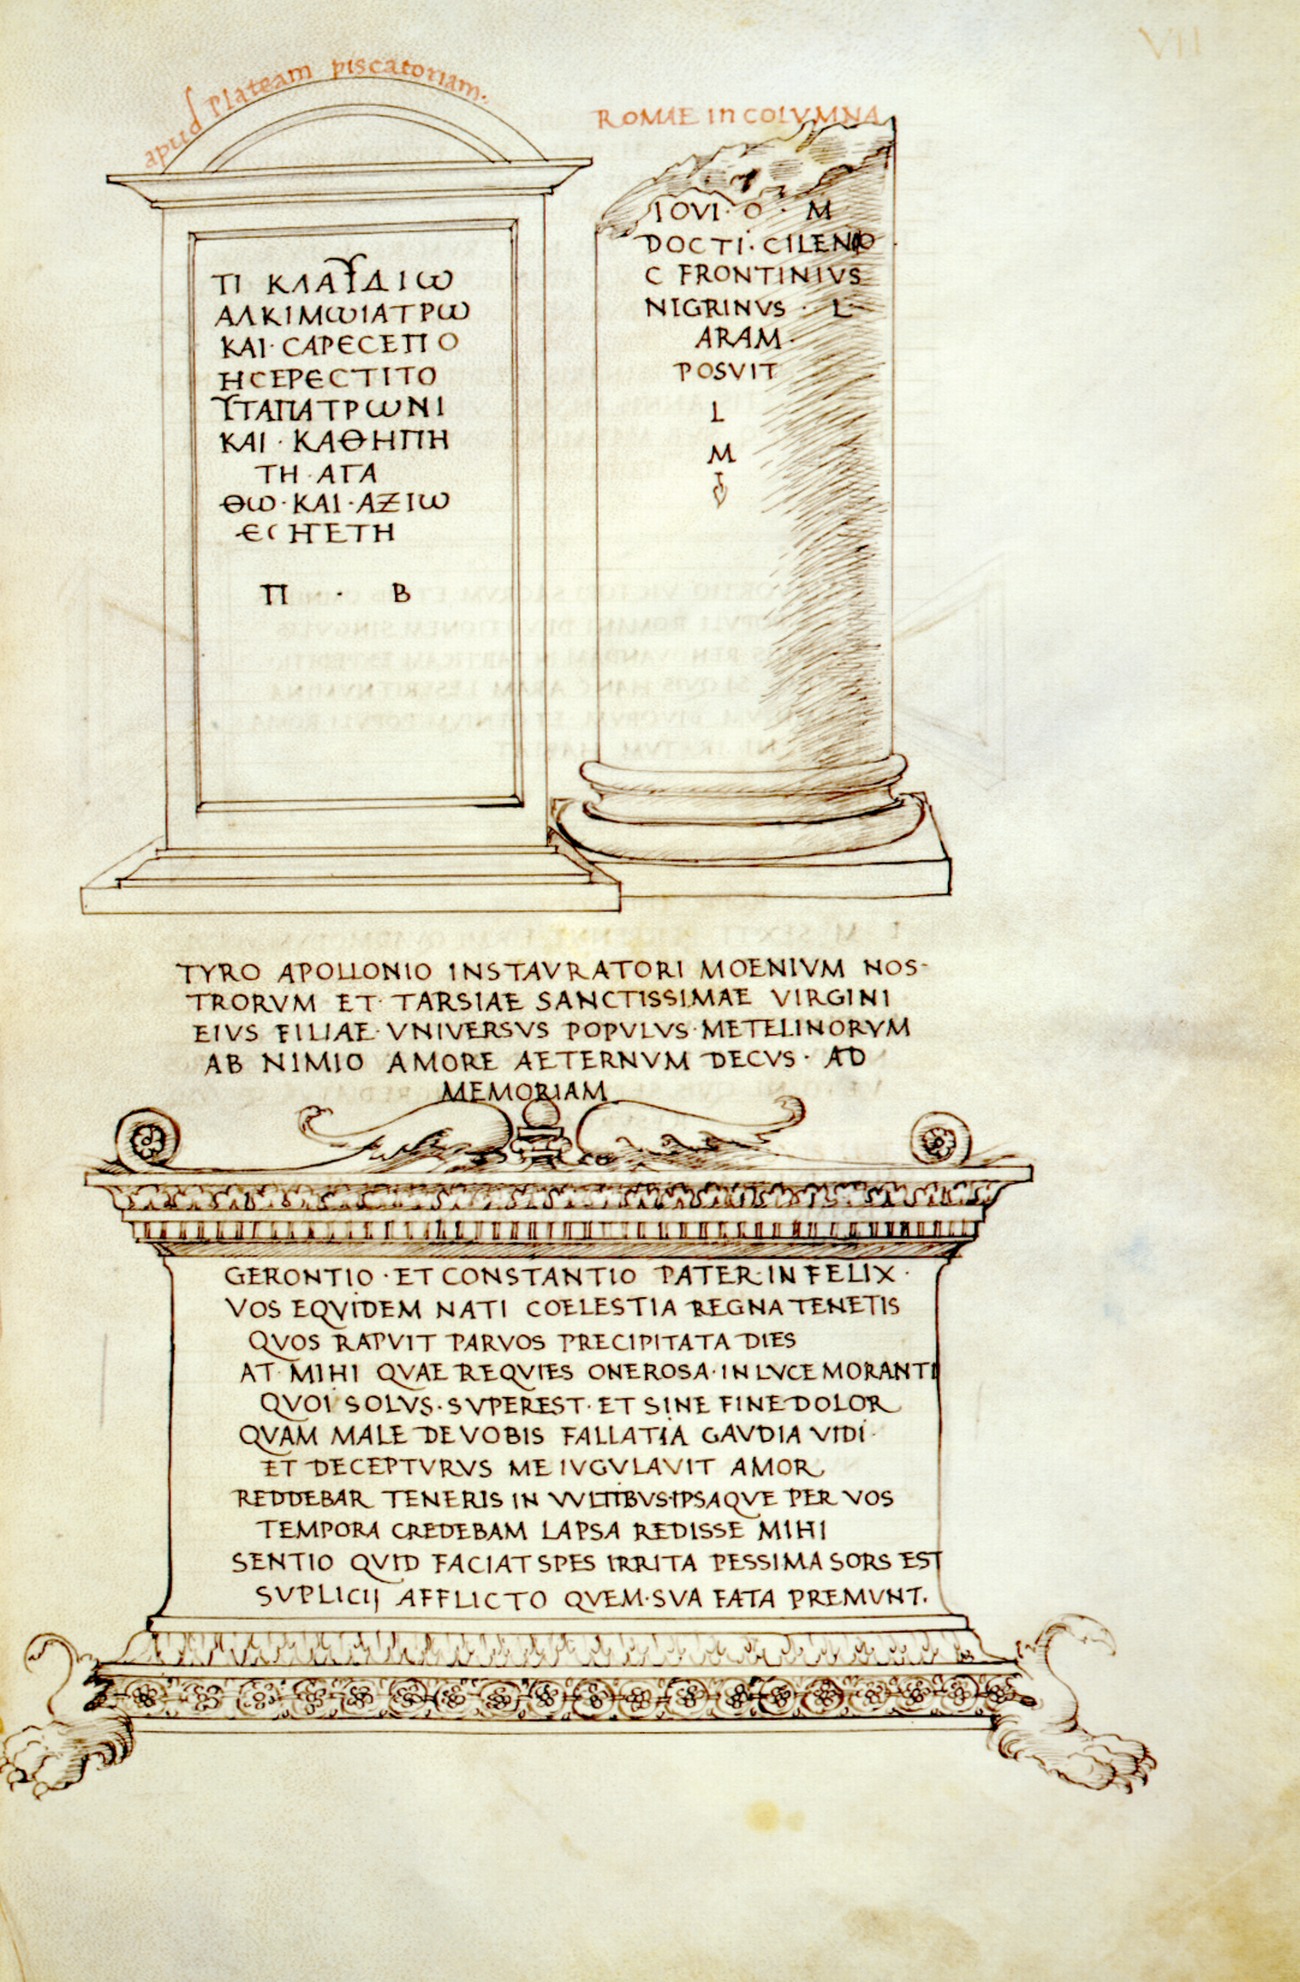 VII
apud Plateam piscatoriam.
ΤΙ ΚΛΑΥΔΙω
ΑΛΚΙΜωΙΑΤΡω
ΚΑΙ· CΑΡЄCЄΠΟ
ΗCЄΡЄCΤΙΤΟ
ΥΤΑΠΑΤΡωΝΙ
ΚΑΙ · ΚΑΘΗΠΗ
ΤΗ · ΑΓΑ
Θω · ΚΑΙ · ΑΞΙω
ЄCΗΓΕΤΗ
Π · Β
ROMAE In COLVMNA
IOVI · O · M
DOCTI · CILENO
C FRONTINIVS
NIGRINVS · L·
ARAM·
POSVIT
L
M
TYRO APOLLONIO INSTAVRATORI MOENIVM NOS-
TRORVM ET· TARSIAE SANCTISSIMAE VIRGINI
EIVS FILIAE· VNIVERSVS POPVLVS· METELINORVM
AB NIMIO AMORE AETERNVM DECVS· AD
MEMORIAM
GERONTIO · ET CONSTANTIO PATER· IN FELIX ·
VOS EQVIDEM NATI COELESTIA REGNA TENETIS
QVOS RAPVIT PARVOS PRECIPITATA DIES
AT· MIHI QVAE REQVIES ONEROSA· IN LVCE MORANTI
QVOI SOLVS· SVPEREST· ET SINE FINE DOLOR
QVAM MALE DE VOBIS FALLATIA GAVDIA VIDI·
ET DECEPTVRVS ME IVGVLAVIT AMOR
REDDEBAR TENERIS IN VVLTIBVS· IPSAQVE PER VOS
TEMPORA CREDEBAM LAPSA REDISSE MIHI
SENTIO QVID FACIAT SPES IRRITA PESSIMA SORS EST
SVPLICIJ AFFLICTO QVEM· SVA FATA PREMVNT.